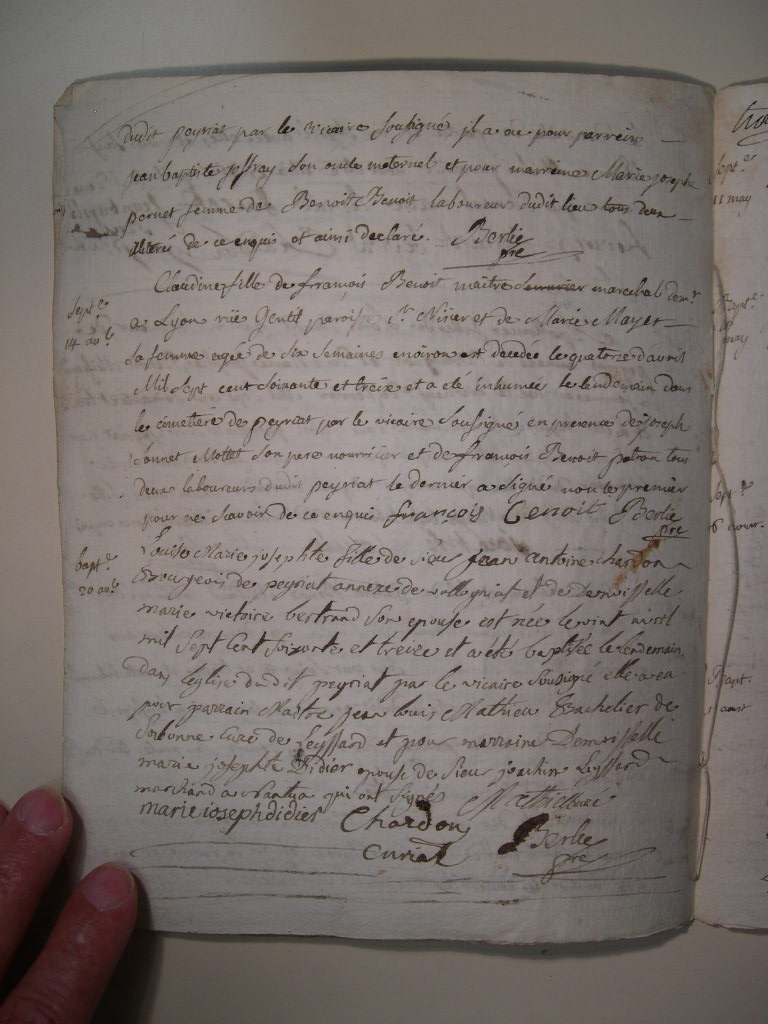 dudit peyriat par le vicaire soussigné, il a eu pour parrein
jean baptiste joffray son oncle maternel et pour marreine Marie Josephe
pernet femme de Benoit Benoit laboureur dudit lieu tous deux
de ce enquis et ainsi declaré. Berlie
pre
Claudine fille de françois Benoit maitre marechal dem.t
Sept.e
14 av.l
a Lyon rüe Gentil paroisse St. Nisier et de Marie Mayet
sa femme agée de six semaines environ est decedée le quatorze d'avril
Mil sept cent soixante et treize et a été inhumée le lendemain dans
le cimetière de peyriat par le vicaire soussigné en presence de joseph
son pere nourricier et de françois Benoit tous
deux laboureurs dudit peyriat le dernier a signé non le premier
pour ne savoir de ce enquis françois Benoit Berlie
pre
bapt.e
20 av.l
Louise Marie josephte fille de sieur jean antoine chardon
Bourgeois de peyriat annexe de vollogniat et de demoiselle
marie victoire bertrand son epouse est née le vint avril
mil sept cent soixante et treize et a été baptisée le lendemain
dans l'eglise dudit peyriat par le vicaire sousigné elle a eu
pour parrain Maitre jean louis Mathieu Bachelier de
Sorbonne curé de Leyssard et pour marraine Demoiselle
marie josephte Didier epouse de sieur joachin Leyssard
marchand a Nantua qui ont signés Mathieu curé
marie ioseph didier Chardon
Curiat Berlie
pre
Sept.e
11 may
may
Sept.e
Bapt.